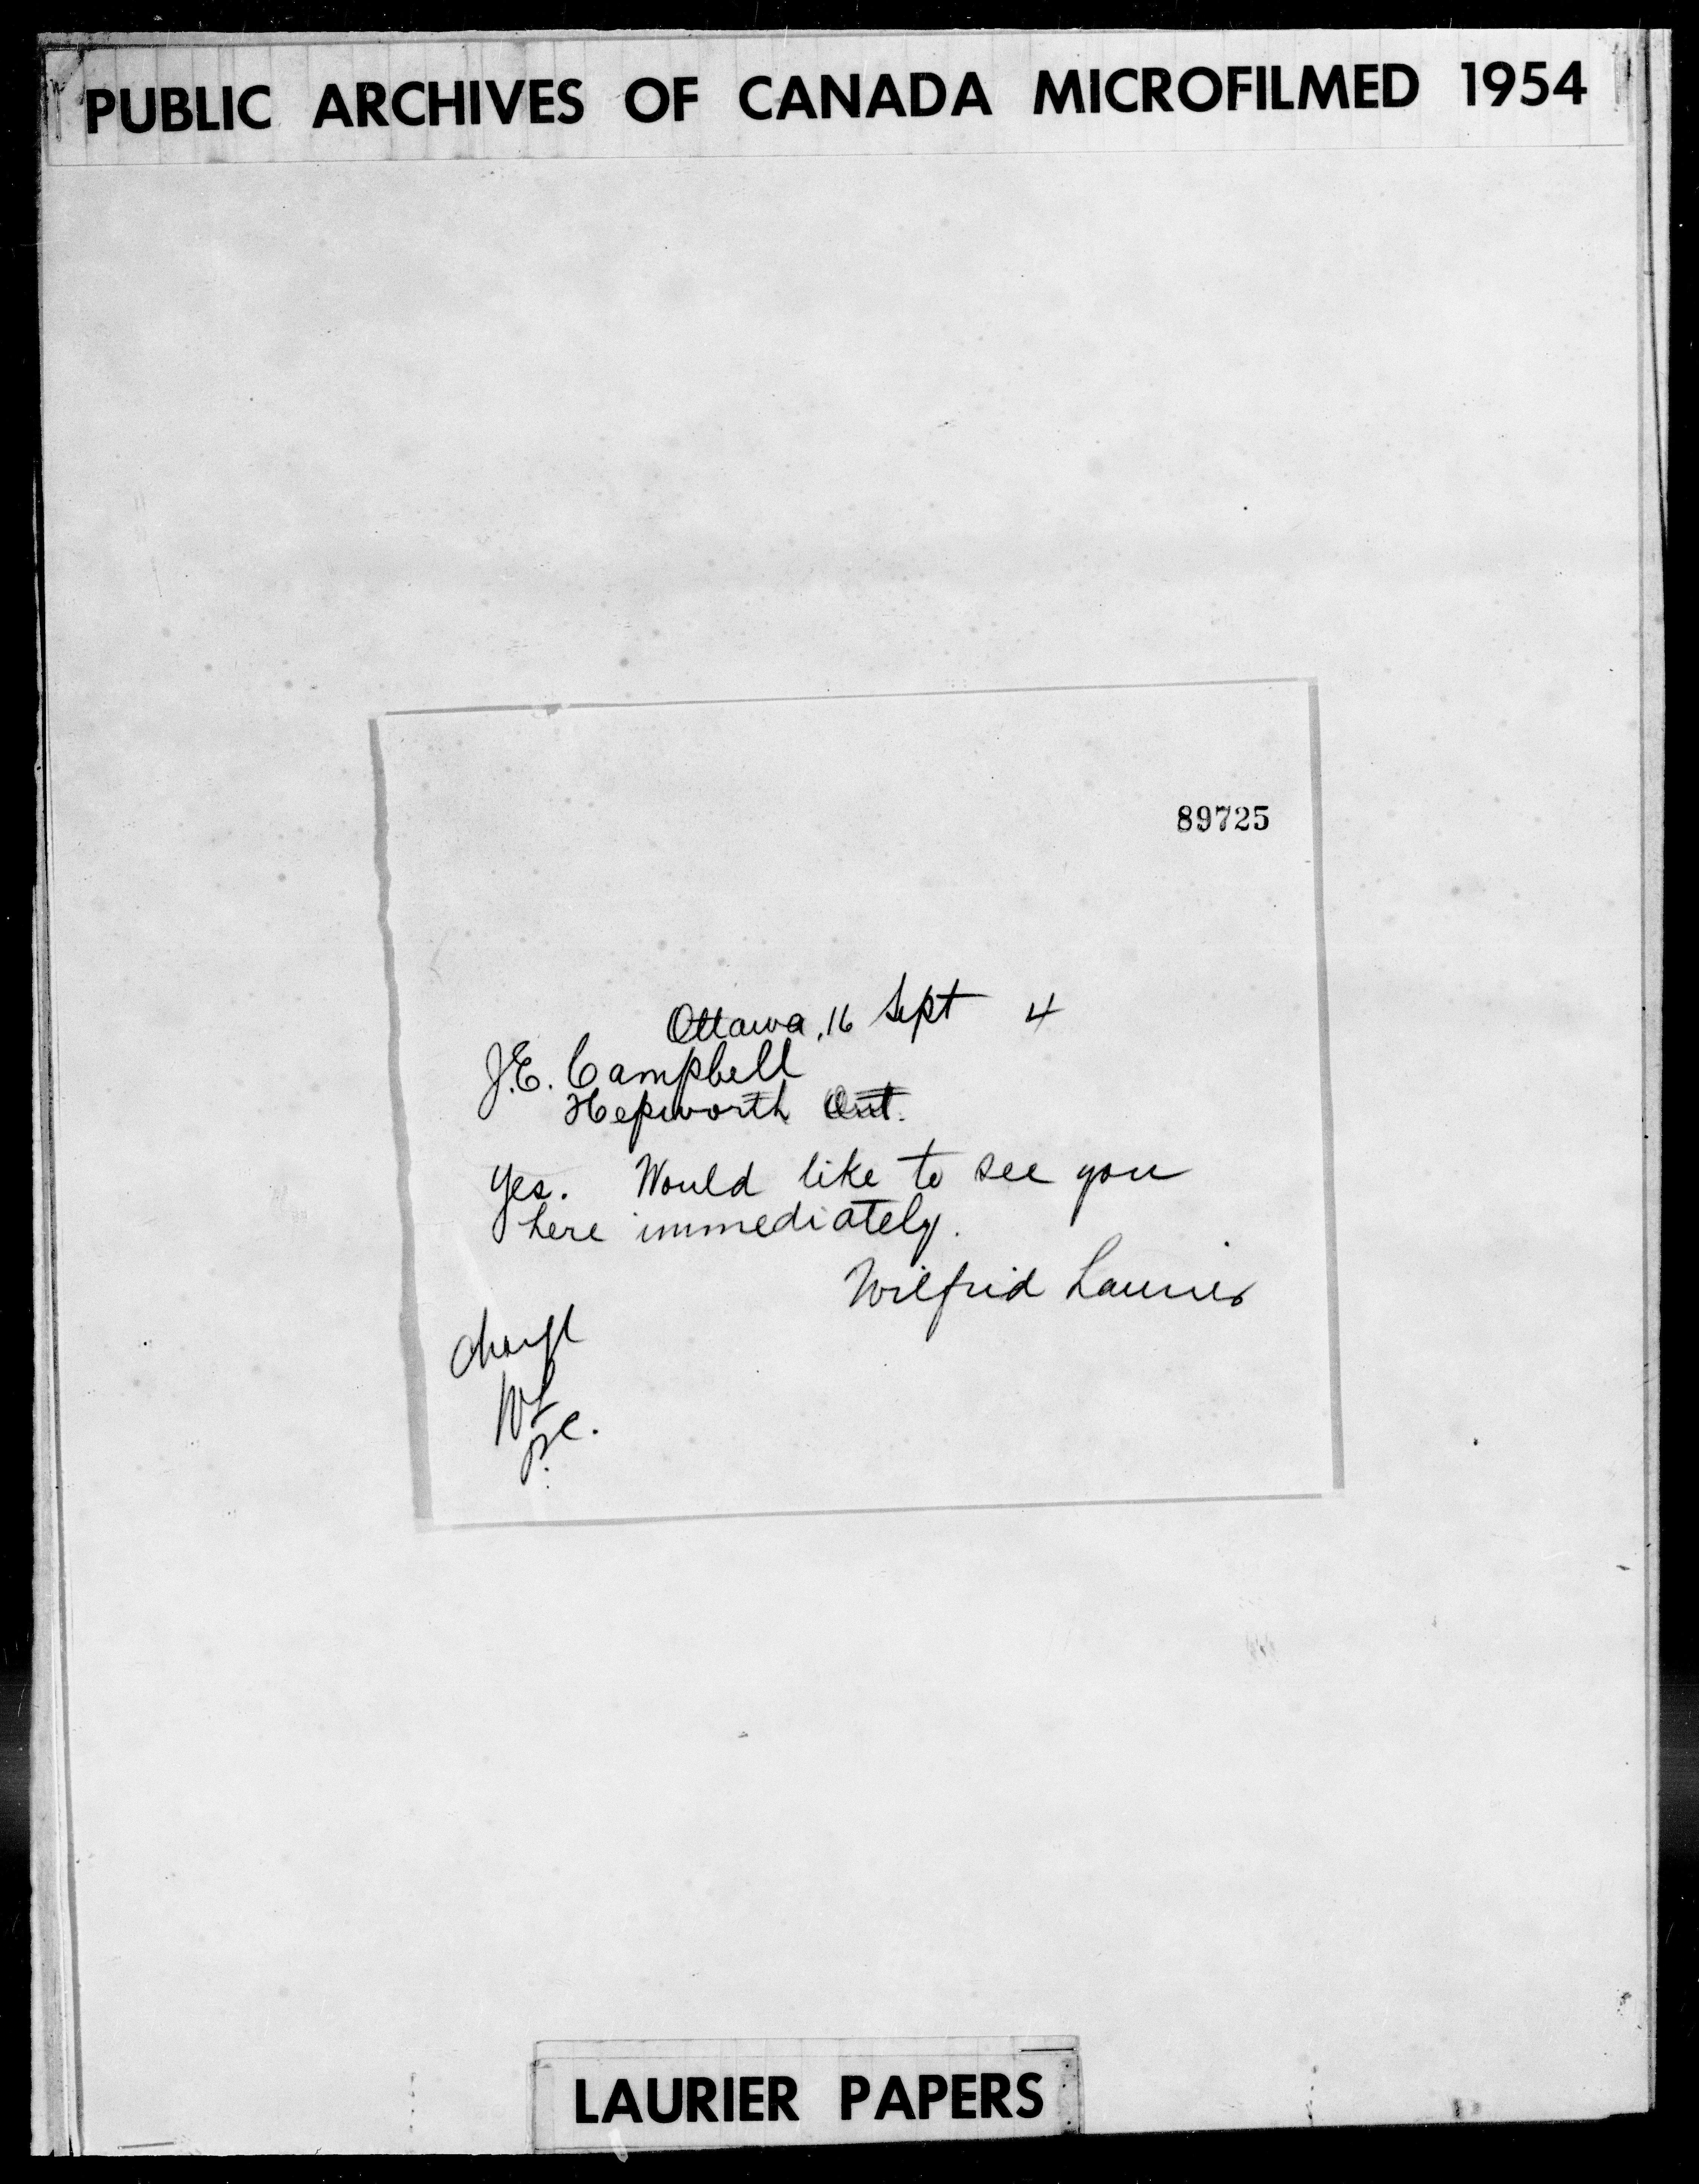 PUBLIC ARCHIVES OF CANADA MICROFILMED 1954
89725
Ottawa, 16 Sept 4
J.E. Campbell
Hepworth Ont.
Yes. Would like to see you
here immediately.
Wilfrid Laurier
Charge
WL
P.C.
LAURIER PAPERS